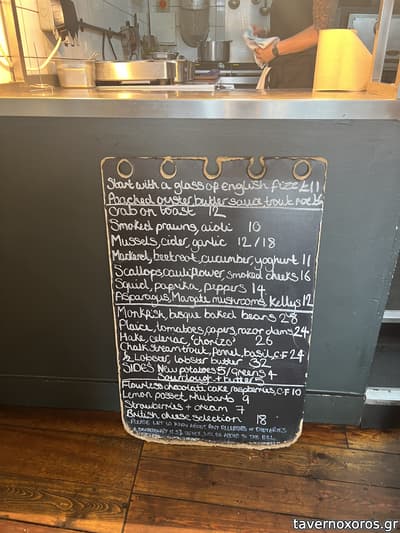 Start with a glass of english fizz £11
Poached oyster butter sauce trout roe
Crab on toast 12
Smoked prawns, aioli 10
Mussels, cider, garlic 12/18
Mackerel, beetroot, cucumber, yoghurt 11
Scallops, cauliflower, smoked cheeks 16
Squid, paprika, peppers 14
Asparagus, Margate mushrooms, Kellys 12
Monkfish, bisque baked beans 28
Plaice, tomatoes, capers, razor clams 24
Hake, celeriac, 'chorizo' 26
Chalk stream trout, fennel, basil, C.F 24
½ Lobster, lobster butter 32
SIDES New potatoes 5/Greens 4
Sourdough + butter 5
Flourless chocolate cake, raspberries, C.F 10
Lemon posset, rhubarb 9
Strawberries + cream 7
British cheese selection 18
PLEASE LET US KNOW ABOUT ANY ALLERGIES OR DIETARIES
A DISCRETIONARY 12.5% SERVICE WILL BE ADDED TO THE BILL
tavernoxoros.gr